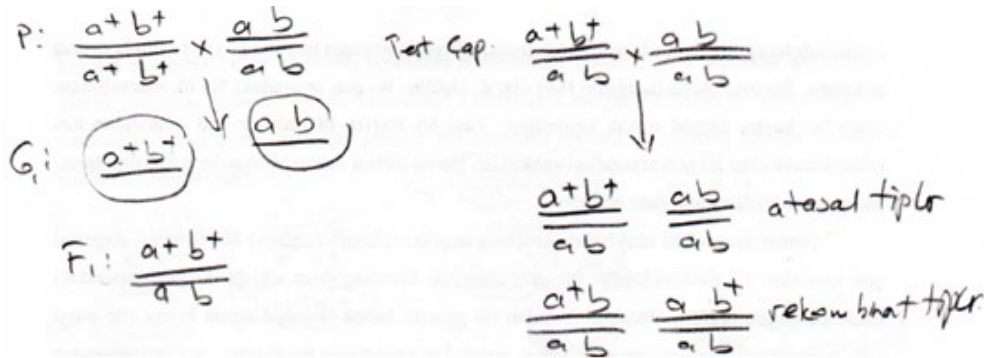 P: a+ b+ / a+ b+ x a b / a b
G: a+b+ a b
F1: a+ b+ / a b
Test Çap: a+b+ / a b x a b / a b
a+b+ / a b a b / a b atasal tipler
a+b / a b a b+ / a b rekombinat tipler